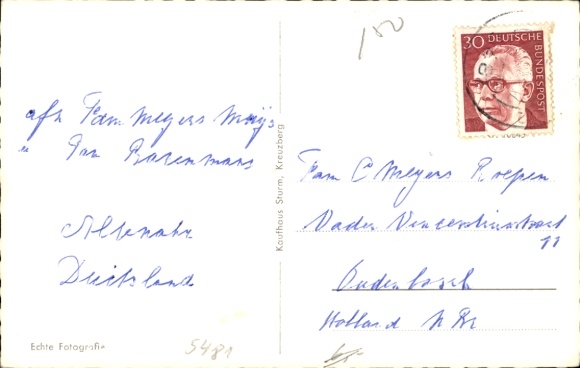 150
30 DEUTSCHE
BUNDESPOST
afz Fam Meyers Muÿs
" Fam
Altenahr
Duitsland
Kaufhaus Sturm, Kreuzberg
Fam C Meÿers Roepen
Vader Vincentiusstraat
11
Oudenbosch
Holland N Br
Echte Fotografie
5481